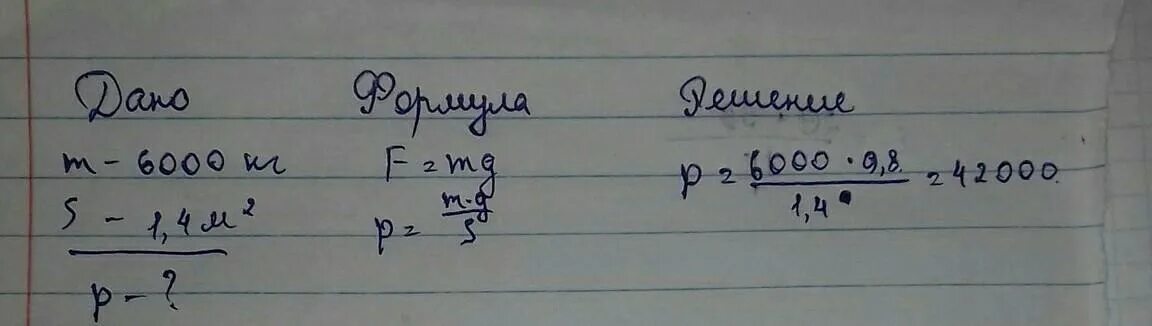 Дано
m - 6000 кг
S - 1,4 м²
p - ?
Формула
F = mg
p = m·g / S
Решение
p = 6000 · 9,8 / 1,4 = 42000